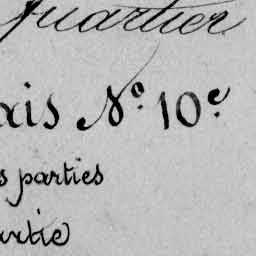 Quartier
ais N.° 10.e
s parties
artie